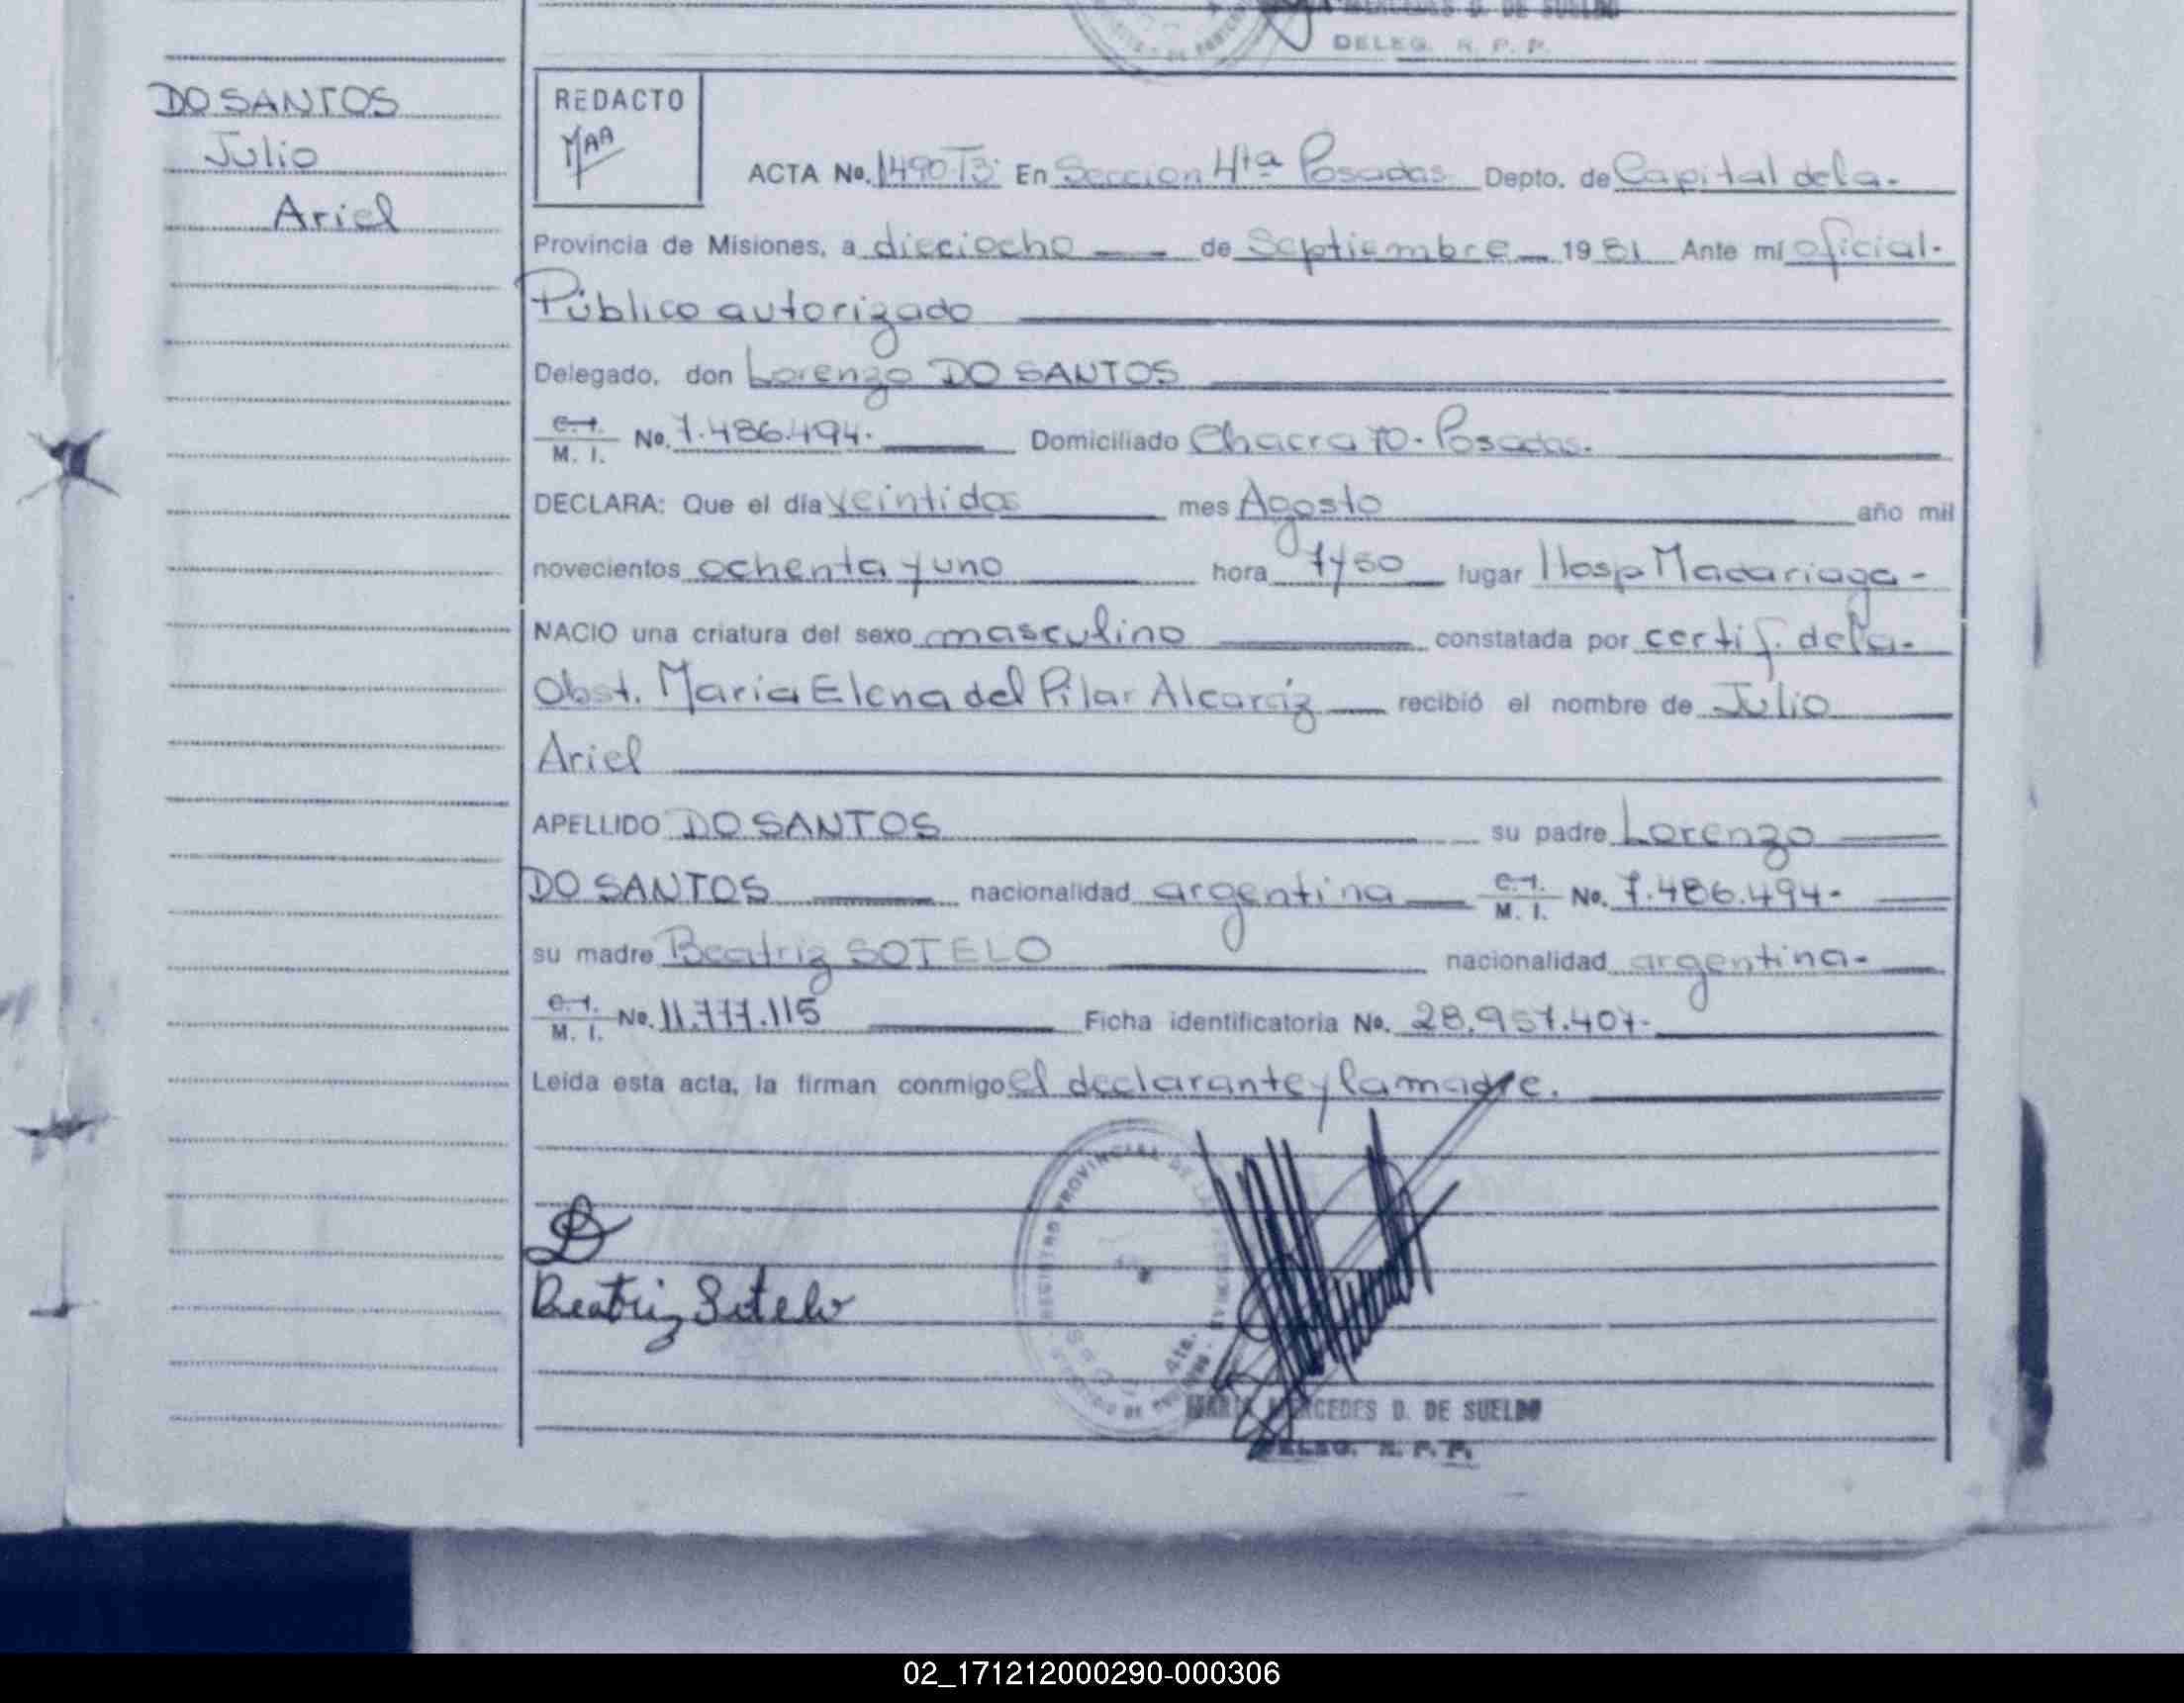 MERCEDES D. DE SUELDO
DELEG. R. P. P.
DO SANTOS
Julio
Ariel
REDACTO
MAA
ACTA No. 1490 T3: En Seccion 4ta Posadas Depto. de Capital de la-
Provincia de Misiones, a dieciocho de Septiembre 19 81 Ante mí oficial-
Público autorizado
Delegado, don Lorenzo DO SANTOS
C. I. / M. I. No. 7.486.494. Domiciliado Chacra 70- Posadas.
DECLARA: Que el día veintidos mes Agosto año mil
novecientos ochenta y uno hora 7y50 lugar Hosp Madariaga-
NACIO una criatura del sexo masculino constatada por certif. de la-
Obst. Maria Elena del Pilar Alcaráz recibió el nombre de Julio
Ariel
APELLIDO DO SANTOS su padre Lorenzo
DO SANTOS nacionalidad argentina C. I. / M. I. No. 7.486.494-
su madre Beatriz SOTELO nacionalidad argentina-
C. I. / M. I. No. 11.777.115 Ficha identificatoria No. 28.957.407-
Leída esta acta, la firman conmigo el declarante y la madre.
REGISTRO PROVINCIAL DE LAS PERSONAS
4ta.
Beatriz Sotelo
MARIA MERCEDES D. DE SUELDO
DELEG. R. P. P.
02_171212000290-000306